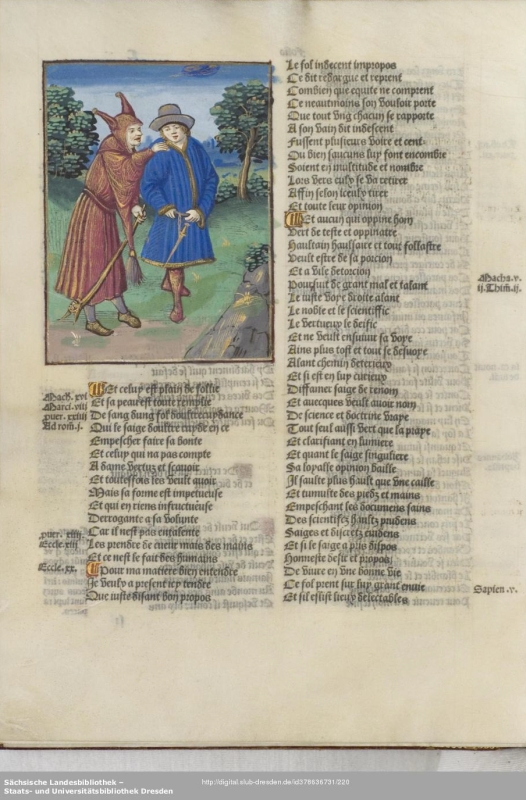 Et celuy est plain de follie
Et sa peau est toute remplie
De sang dung fol doultrecuydance
Qui le saige doultre cuyde en ce
Empescher faire sa bonte
Et celuy qui na pas compte
A dame vertus et scauoir
Et touteffois les veult auoir
Mais sa forme est impetueuse
Et qui en riens infructueuse
Derrogante a sa volunte
Car il nest pas entalente
Les prendre de cueur mais des mains
Et ce nest le fait des humains
Pour ma matiere bien entendre
Je veulx a present icy tendre
Que iuste disant bon propos
Mach. xvi
Marci. viii
puer. xxiiii
Ad rom. i.
puer. xiiii
Eccle. xiii
Eccle. xx.
Le fol indecent impropos
Ce dit redargue et reprent
Combien que equite ne comprent
Ce neautmains son vouloir porte
Que tout vng chacun se rapporte
A son vain dit indescent
Fussent plusieurs voire et cent
Ou bien saucuns luy font encombre
Soient en multitude et nombre
Lors vers culx se va retirer
Affin selon iceulx tirer
Et toute leur opinion
Et aucun qui oppine hom
Vert de teste et oppinatre
Haultain haulsaire et tout follastre
Veult estre de sa porcion
Et a vile detorcion
Poursuit de grant mal et talant
Le iuste voye droite alant
Le noble et le scientiffic
Le vertueux le deific
Et ne veult ensuiuir sa voye
Ains plus tost et tout se desuoye
Alant chemin deterieux
Et si est en luy curieux
Diffamer saige de renom
Et auecques veult auoir nom
De science et doctrine vraye
Tout seul aussi vert que la praye
Et clarifiant en lumiere
Et quant le saige singuliere
Sa loyalle opinion baille
Il saulte plus hault que vne caille
Et tumulte des piedz et mains
Empeschant les documens sains
Des scientifez haultz prudens
Saiges et discretz euidens
Et si le saige a puis dispos
Honneste desir et propos
De viure en vne bonne vie
Ce fol prent sur luy grant enuie
Et sil eslist lieux delectables
Machs. v.
ii. Thim. ii.
Sapien. v.
Sächsische Landesbibliothek –
Staats- und Universitätsbibliothek Dresden
http://digital.slub-dresden.de/id378636731/220